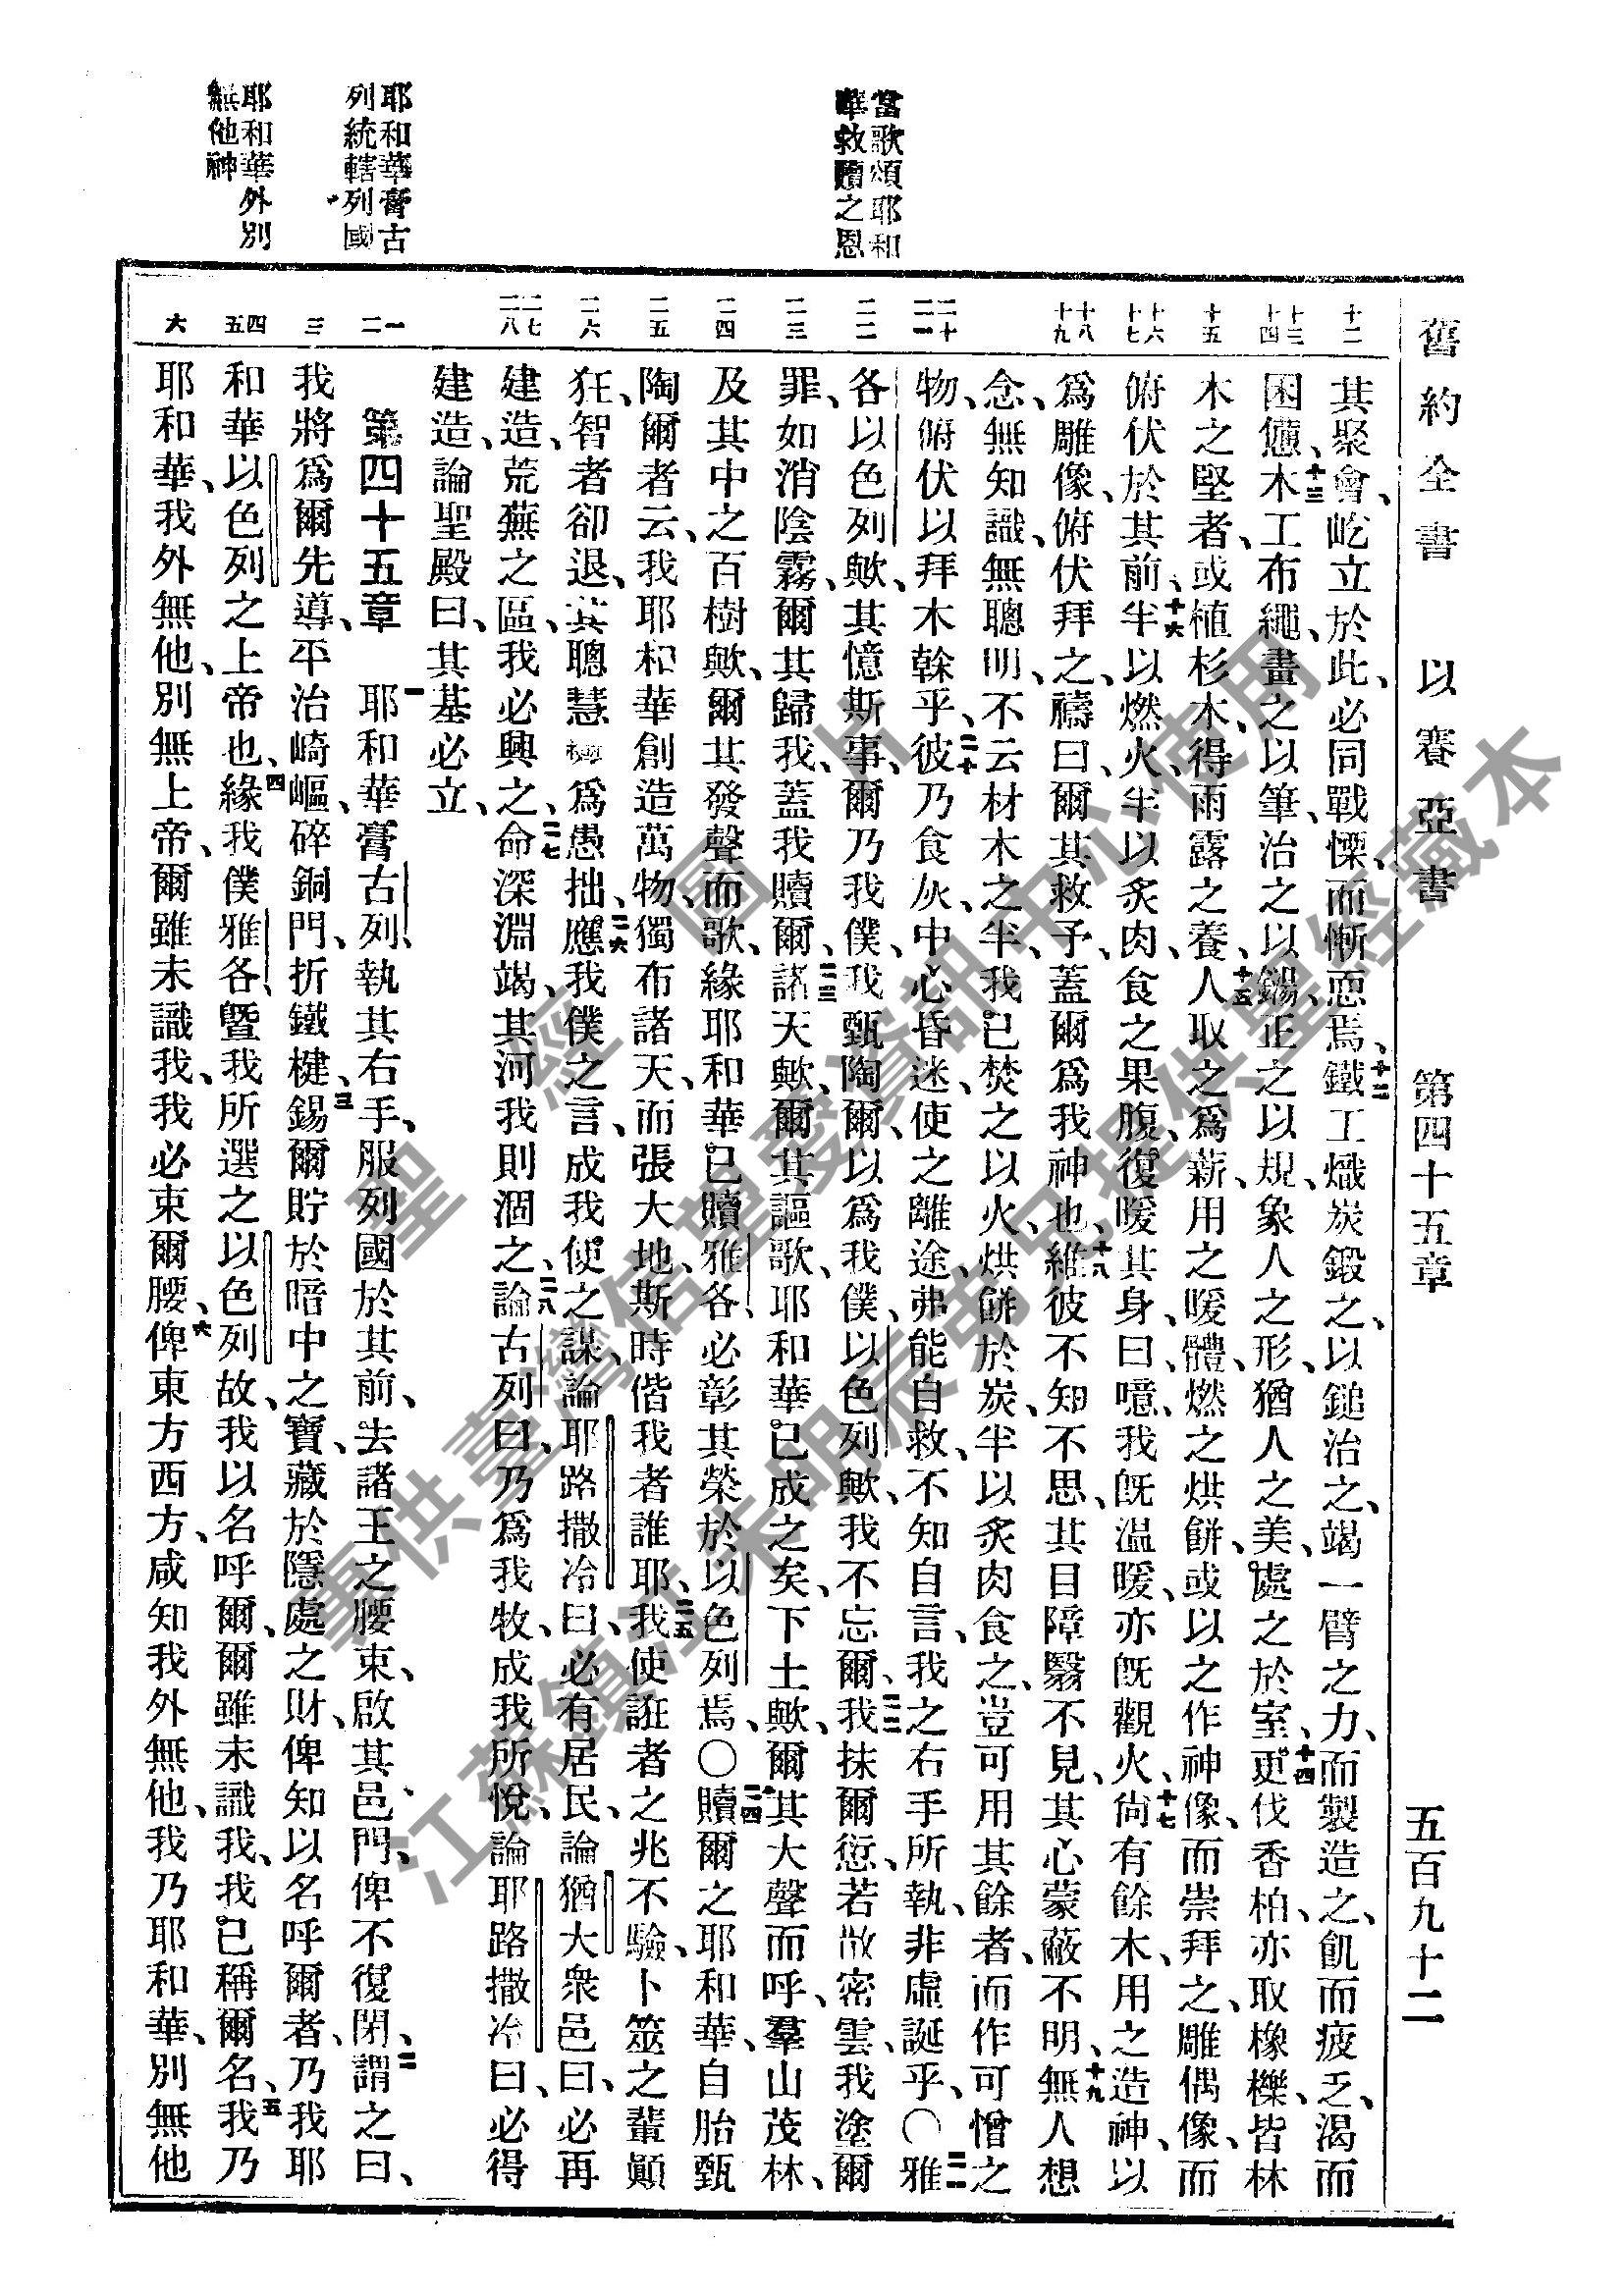 舊約全書 以賽亞書 第四十五章 五百九十二
當歌頌耶和
華救贖之恩
耶和華膏古
列統轄列國
耶和華外別
無他神
十二
十三
十四
十五
十六
十七
十八
十九
二十
二一
二二
二三
二四
二五
二六
二七
二八
一
二
三
四
五
六
其聚會、屹立於此、必同戰慄、而慚恧焉、十二鐵工熾炭鍛之、以鎚治之、竭一臂之力、而製造之、飢而疲乏、渴而
困憊、十三木工布繩、畫之以筆、治之以鐋、正之以規、象人之形、猶人之美、處之於室、十四更伐香柏、亦取橡櫟、皆林
木之堅者、或植杉木、得雨露之養、十五人取之爲薪、用之暖體、燃之烘餅、或以之作神像、而崇拜之、雕偶像、而
俯伏於其前、十六半以燃火、半以炙肉、食之果腹、復暖其身、曰、噫、我旣溫暖、亦旣觀火、十七尙有餘木、用之造神、以
爲雕像、俯伏拜之、禱曰、爾其救予、蓋爾爲我神也、十八維彼不知不思、其目障翳不見、其心蒙蔽不明、十九無人想
念、無知識、無聰明、不云材木之半、我已焚之以火、烘餅於炭、半以炙肉食之、豈可用其餘者、而作可憎之
物、俯伏以拜木榦乎、二十彼乃食灰、中心昏迷、使之離途、弗能自救、不知自言、我之右手所執、非虛誕乎、○二一雅
各以色列歟、其憶斯事、爾乃我僕、我甄陶爾、以爲我僕、以色列歟、我不忘爾、二二我抹爾愆、若散密雲、我塗爾
罪、如消陰霧、爾其歸我、蓋我贖爾、二三諸天歟、爾其謳歌、耶和華已成之矣、下土歟、爾其大聲而呼、羣山茂林、
及其中之百樹歟、爾其發聲而歌、緣耶和華已贖雅各、必彰其榮於以色列焉、○二四贖爾之耶和華、自胎甄
陶爾者云、我耶和華創造萬物、獨布諸天、而張大地、斯時偕我者誰耶、二五我使誑者之兆不驗、卜筮之輩顚
狂、智者卻退、其聰慧爲愚拙、二六應我僕之言、成我使之謀、論耶路撒冷曰、必有居民、論猶大衆邑曰、必再
建造、荒蕪之區、我必興之、二七命深淵竭、其河我則涸之、二八論古列曰、乃爲我牧、成我所悅、論耶路撒冷曰、必得
建造、論聖殿曰、其基必立、
第四十五章 一耶和華膏古列、執其右手、服列國於其前、去諸王之腰束、啟其邑門、俾不復閉、二謂之曰、
我將爲爾先導、平治崎嶇、碎銅門、折鐵楗、三錫爾貯於暗中之寶、藏於隱處之財、俾知以名呼爾者、乃我耶
和華以色列之上帝也、四緣我僕雅各、曁我所選之以色列故、我以名呼爾、爾雖未識我、我已稱爾名、五我乃
耶和華、我外無他、別無上帝、爾雖未識我、我必束爾腰、六俾東方西方、咸知我外無他、我乃耶和華、別無他
聖經圖片
專供臺灣信望愛資訊中心使用
江蘇鎮江朱明辰弟兄提供聖經藏本